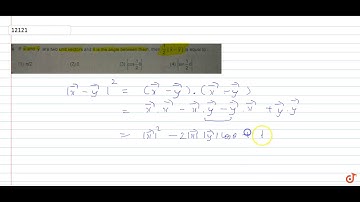 12121
If x̄ and ȳ are two unit vectors and θ is the angle between them, then
is equal to :
(1) π/2 (2) 0 (3) |cos θ/2| (4) |sin θ/2|
|x⃗ - y⃗|² = (x⃗ - y⃗) . (x⃗ - y⃗)
= x⃗ . x⃗ - x⃗ . y⃗ - y⃗ . x⃗ + y⃗ . y⃗
= |x⃗|² - 2|x⃗| |y⃗| cos θ + 1